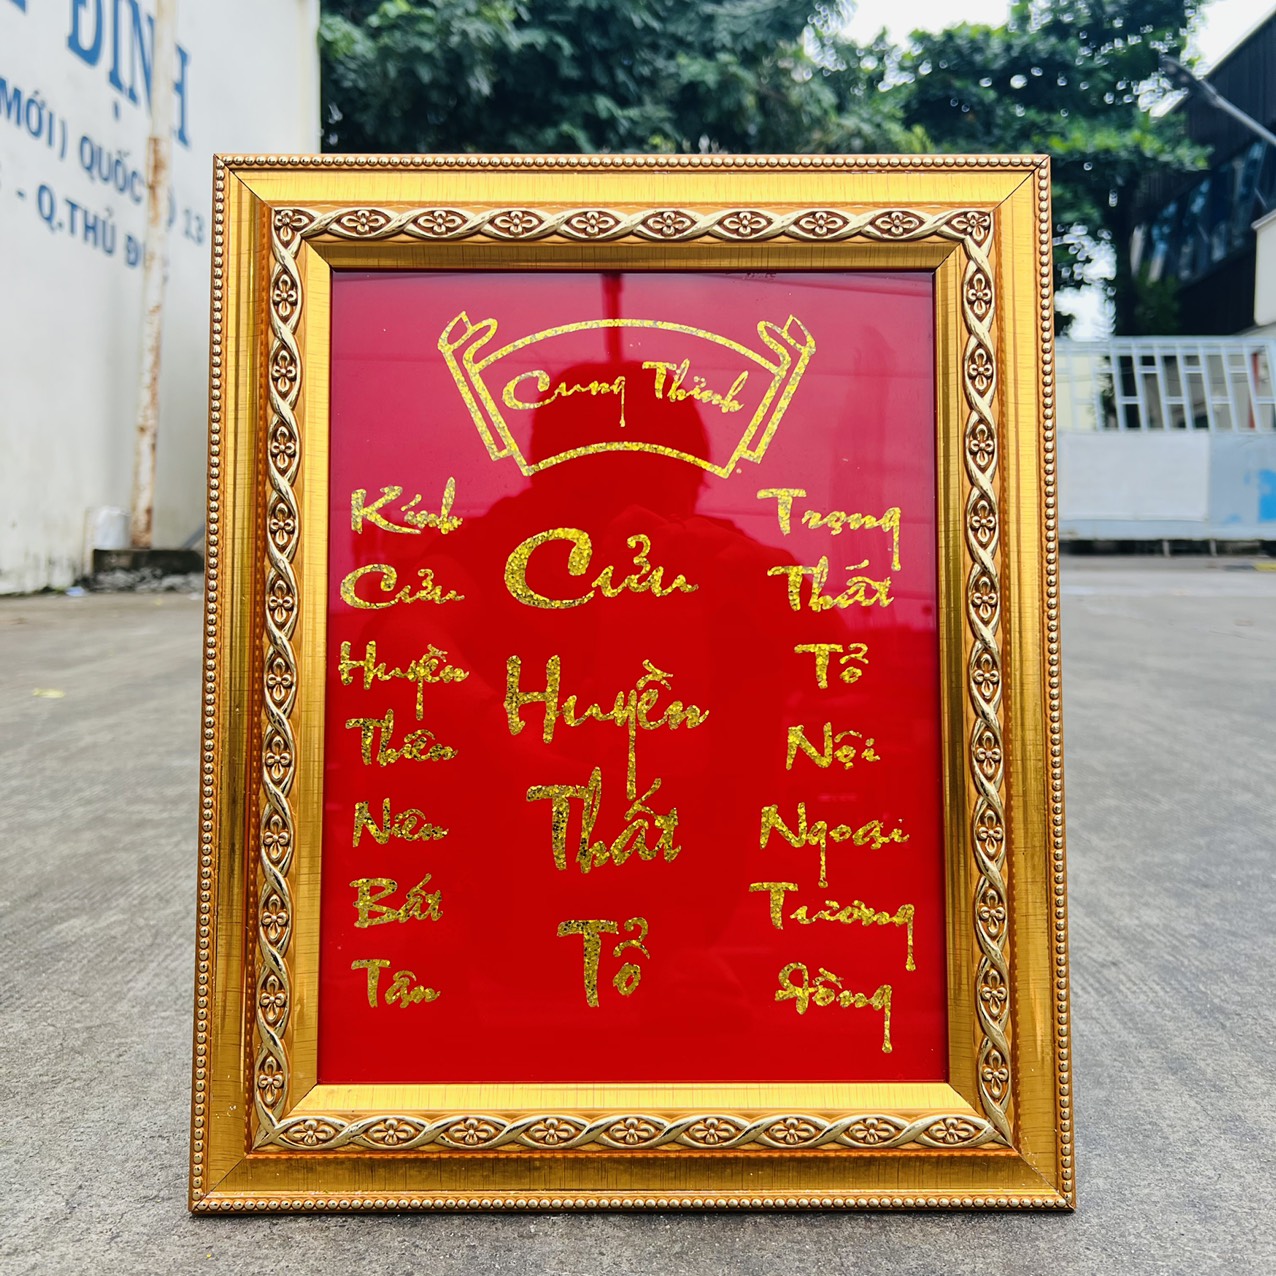 ĐỊNH
MỚI) QUỐC LỘ 13
- Q.THỦ ĐỨC
Cung Thỉnh
Kính
Cửu
Huyền
Thiên
Niên
Bất
Tận
Cửu
Huyền
Thất
Tổ
Trọng
Thất
Tổ
Nội
Ngoại
Tương
Đồng